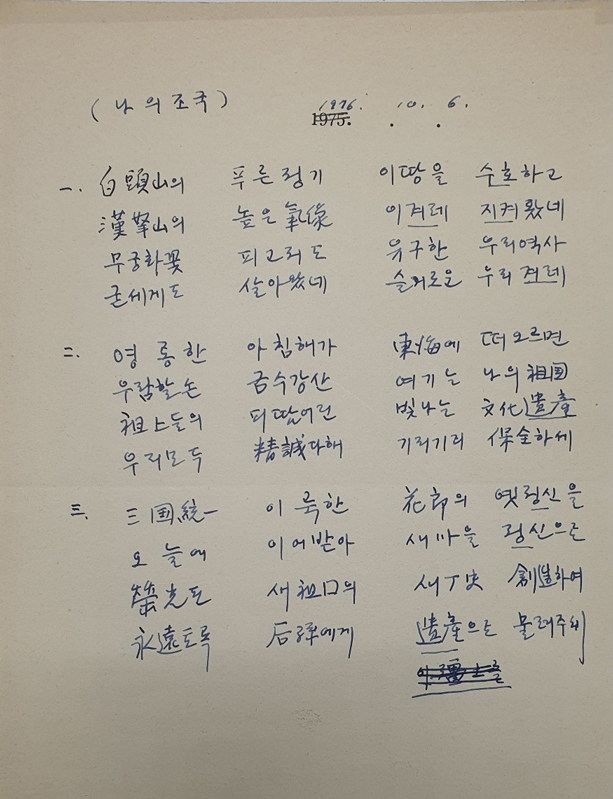 (나의조국) 1976. 10. 6.
1975. . .
一. 白頭山의 푸른정기 이땅을 수호하고
漢拏山의 높은氣像 이겨레 지켜왔네
무궁화꽃 피고지도 유구한 우리역사
굳세게도 살아왔네 슬기로운 우리겨레
二. 영롱한 아침해가 東海에 떠오르면
우람할손 금수강산 여기는 나의祖国
祖上들의 피땀어린 빛나는 文化遺産
우리모두 精誠다해 기리기리 保全하세
三. 三国統一 이룩한 花郎의 옛정신을
오늘에 이어받아 새마을 정신으로
榮光된 새祖口의 새丁史 創造하여
永遠토록 后孫에게 遺産으로 물려주세